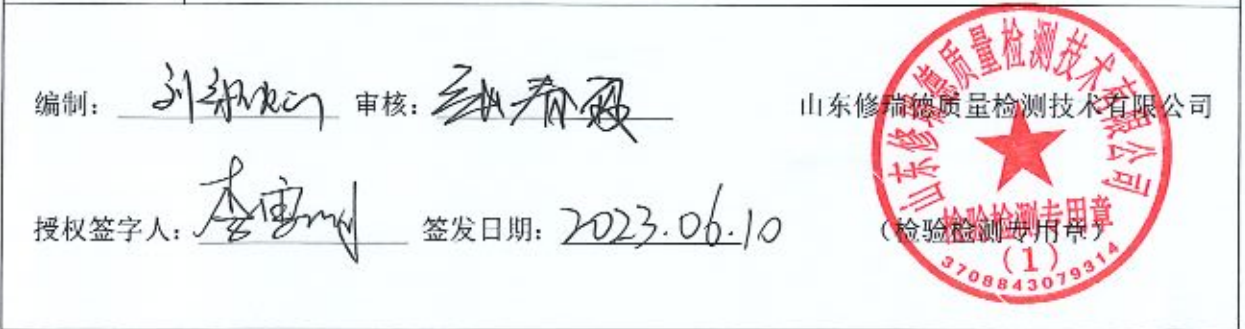 编制： 审核： 山东修瑞德质量检测技术有限公司
授权签字人： 签发日期：2023.06.10 （检验检测专用章）
山东修瑞德质量检测技术有限公司
检验检测专用章
（1）
3708843079314